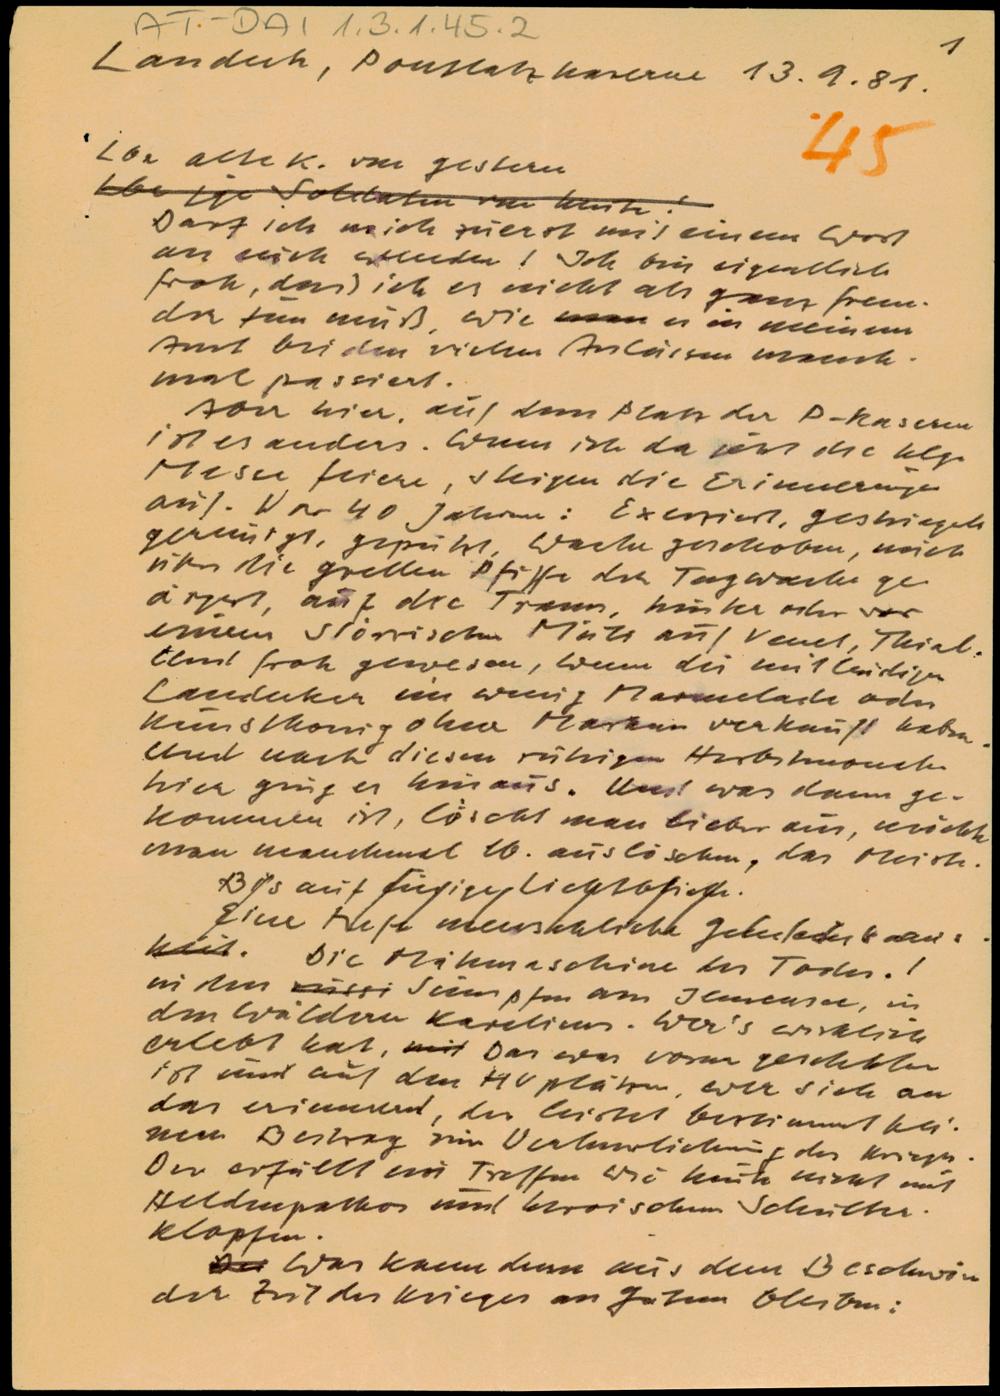 AT-DAI 1.3.1.45.2
1
Landeck, Pontlatzkaserne 13.9.81.
45
Lbe alte K. von gestern
Lbe jge Soldaten von heute!
Darf ich mich zuerst mit einem Wort
an euch wenden! Ich bin eigentlich
froh, dass ich es nicht als ganz frem-
der tun muß, wie man es in meinem
Amt bei den vielen Anlässen manch-
mal passiert.
Aber hier, auf dem Platz der P-Kaserne
ist es anders. Wenn ich da jetzt die hlg.
Messe feiere, steigen die Erinnerungen
auf. Vor 40 Jahren: Exerziert, gestriegelt
gereinigt, geputzt, Wache geschoben, mich
über die grellen Pfiffe der Tagwache ge-
ärgert, auf der Trams, hinter oder vor
einem störrischen Muli auf Venet, Thial.
Und froh gewesen, wenn die mitleidigen
Landecker ein wenig Marmelade oder
Kunsthonig ohne Marken verkauft haben.
Und nach diesen ruhigen Herbstmonaten
hier ging es hinaus. Und was dann ge-
kommen ist, löscht man lieber aus, möchte
man manchmal lb. auslöschen, das meiste.
Bis auf einige Lichtblicke.
Eine tiefe menschliche
Die Mähmaschine des Todes.!
in den Sümpfen am Ilmensee, in
den Wäldern Kareliens. Wer's wirklich
erlebt hat, mit Das was vorn geschehen
ist und auf den HVplätzen, wer sich an
das erinnert, der leistet bestimmt kei-
nen Beitrag zur Verherrlichung des Krieges.
Der erfüllt ein Treffen wie heute nicht mit
Heldenpathos und heroischem Schulter-
klopfen.
Was kann denn aus dem Beschwören
der Zeit des Krieges an Gutem bleiben: